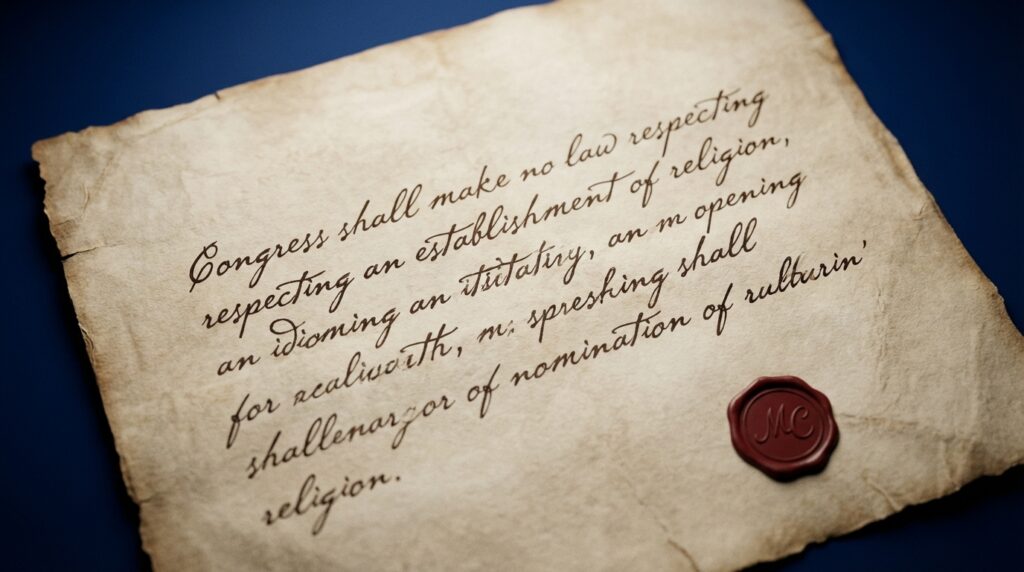 Congress shall make no law respecting
respecting an establishment of religion,
an idioming an itsitatiry, an m opening
for scaliworth, m: spreshing shall
shallenarzor of nomination of rulturin'
religion.
MC